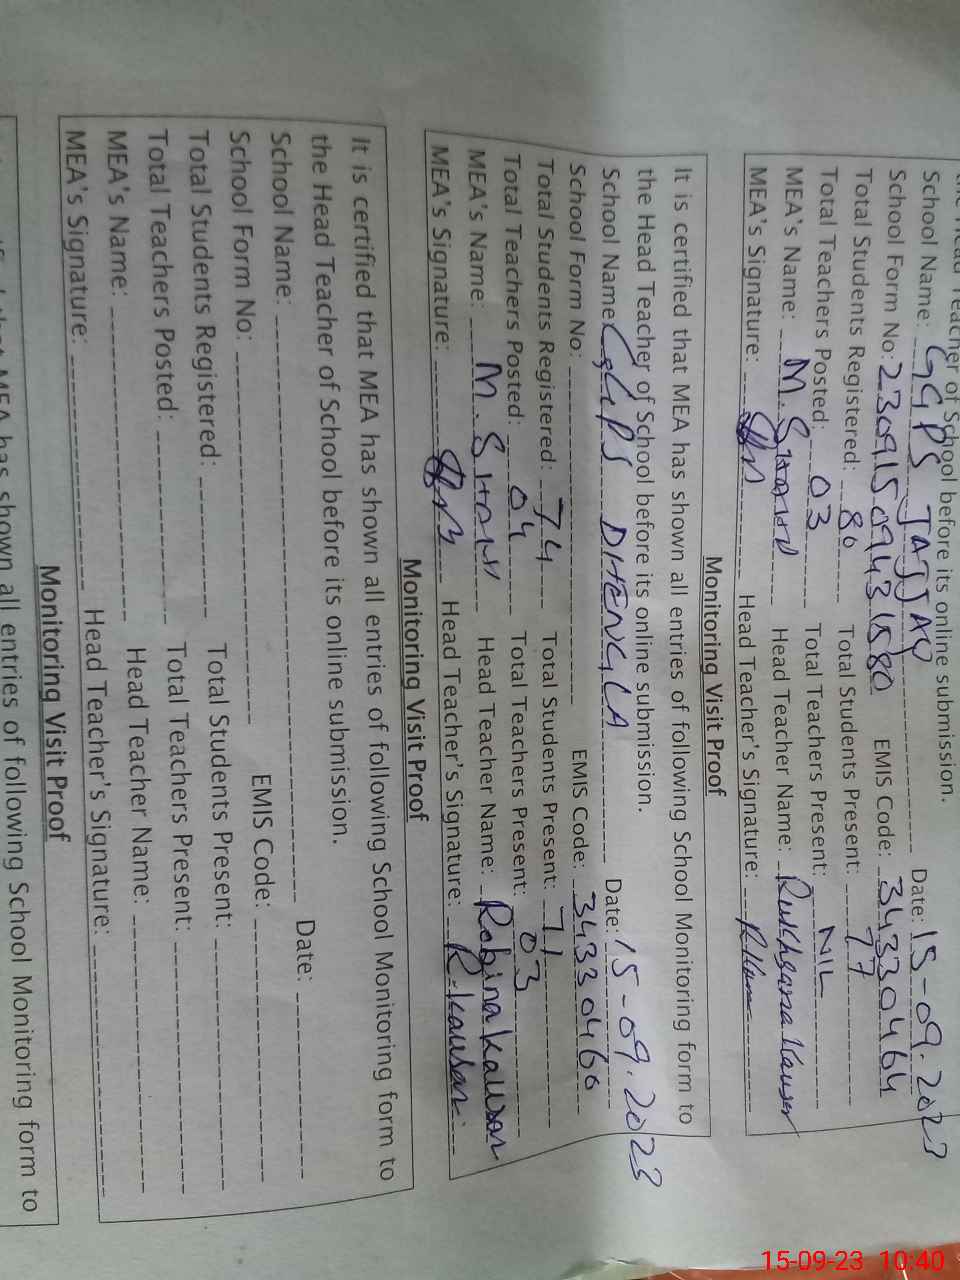 the Head Teacher of School before its online submission.
School Name: GGPS JAJJAY Date: 15-09.2023
School Form No: 230915094431580 EMIS Code: 34330464
Total Students Registered: 80 Total Students Present: 77
Total Teachers Posted: 03 Total Teachers Present: NIL
MEA's Name: M. SHAHID Head Teacher Name: Rukhsana Kauser
MEA's Signature: Head Teacher's Signature:
Monitoring Visit Proof
It is certified that MEA has shown all entries of following School Monitoring form to
the Head Teacher of School before its online submission.
School Name GGPS DHENGLA Date: 15-09.2023
School Form No: EMIS Code: 34330460
Total Students Registered: 74 Total Students Present: 71
Total Teachers Posted: 04 Total Teachers Present: 03
MEA's Name: M. Head Teacher Name: Robina kausar
MEA's Signature: Head Teacher's Signature: R. Kausar
Monitoring Visit Proof
It is certified that MEA has shown all entries of following School Monitoring form to
the Head Teacher of School before its online submission.
School Name: Date:
School Form No: EMIS Code:
Total Students Registered: Total Students Present:
Total Teachers Posted: Total Teachers Present:
MEA's Name: Head Teacher Name:
MEA's Signature: Head Teacher's Signature:
Monitoring Visit Proof
MEA has shown all entries of following School Monitoring form to
15-09-23 10:40